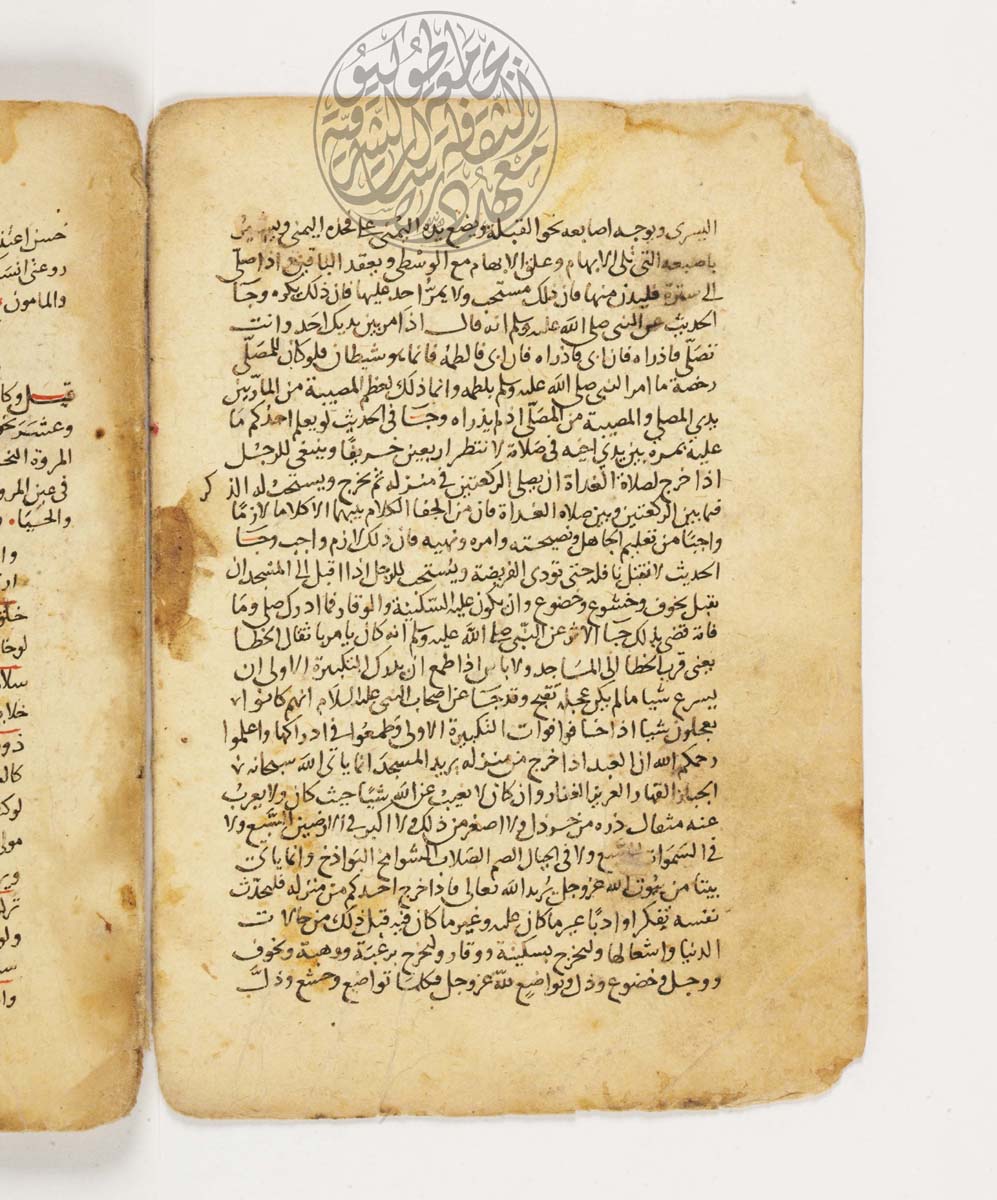 معهد الثقافة والدراسات الشرقية
جامعة طوكيو
اليسرى ويوجه اصابعه نحو القبلة ويضع يده اليمنى على فخذه اليمنى ويشير
باصبعه التي تلي الابهام وعلق الابهام مع الوسطى ويعقد الباقين واذا صلى
الى سترة فليدن منها فان ذلك مستحب ولا يمر احد عليها فان ذلك يكره وجا
الحديث عن النبي صلى الله عليه وسلم انه قال اذا مر بين يديك احد وانت
تصلي فادراه فان ابى فادراه فان ابى فالطمه فانما هو شيطان فلو كان للمصلي
رخصة ما امر النبي صلى الله عليه وسلم بلطمه وانما ذلك لعظم المصيبة من المار بين
يدي المصلي والمصيبة من المصلي اذ لم يدراه وجا في الحديث لو يعلم احدكم ما
عليه بممره بين يدي اخيه في صلاة لانتظر اربعين خريفا وينبغي للرجل
اذا خرج لصلاة الغداة ان يصلي الركعتين في منزله ثم يخرج ويستحب له الذكر
فيما بين الركعتين وبين صلاة الغداة فان من الجفا الكلام بينهما الا كلاما لازما
واجبا من تعليم الجاهل ونصيحته وامره ونهيه فان ذلك لازم واجب وجا
الحديث لا تقبل نافلة حتى تودى الفريضة ويستحب للرجل اذا اقبل الى المسجد ان
يقبل بخوف وخشوع وخضوع وان يكون عليه السكينة والوقار فما ادرك صلى وما
فاته قضى بذلك جا الاثر عن النبي صلى الله عليه وسلم انه كان يامر باثقال الخطا
يعني قرب الخطا الى المساجد ولا باس اذا طمع ان يدرك التكبيرة الاولى ان
يسرع شيا ما لم يكن عجلة تقبح وقد جا عن اصحاب النبي عليه السلام انهم كانوا
يعجلون شيا اذا خافوا فوات التكبيرة الاولى وطمعوا في ادراكها واعلموا
رحمكم الله ان العبد اذا خرج من منزله يريد المسجد انما ياتي الله سبحانه
الجبار القهار العزيز الغفار وان كان لا يغيب عن الله شيا حيث كان ولا يعزب
عنه مثقال ذره من خردل ولا اصغر من ذلك ولا اكبر في الارضين السبع ولا
في السموات السبع ولا في الجبال الصم الصلاب الشوامخ البواذخ وانما ياتي
بيتا من بيوت الله عز وجل يريد الله تعالى فاذا خرج احدكم من منزله فليحدث
نفسه تفكرا وادبا غير ما كان عليه وغير ما كان فيه قبل ذلك من حالات
الدنيا واشغالها وليخرج بسكينة ووقار وليخرج برغبة ورهبة وبخوف
ووجل وخضوع وذل وتواضع لله عز وجل فكلما تواضع وخشع وذل